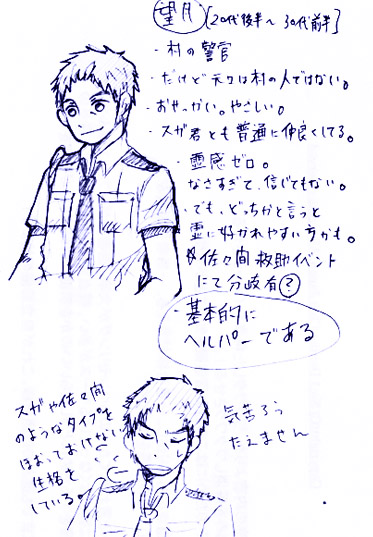 望月 [20代後半~30代前半]
・村の警官
・だけど元々は村の人ではない。
・おせっかい。やさしい。
・スガ君とも普通に仲良くしてる。
・霊感ゼロ。
なさすぎて、信じてもない。
・でも、どっちかと言うと
霊に好かれやすい方かも。
佐々間救助イベント
にて分岐有?
・基本的に
ヘルパーである
スガや佐々間
のようなタイプを
ほおっておけない
性格を
している。
気苦ろう
たえません